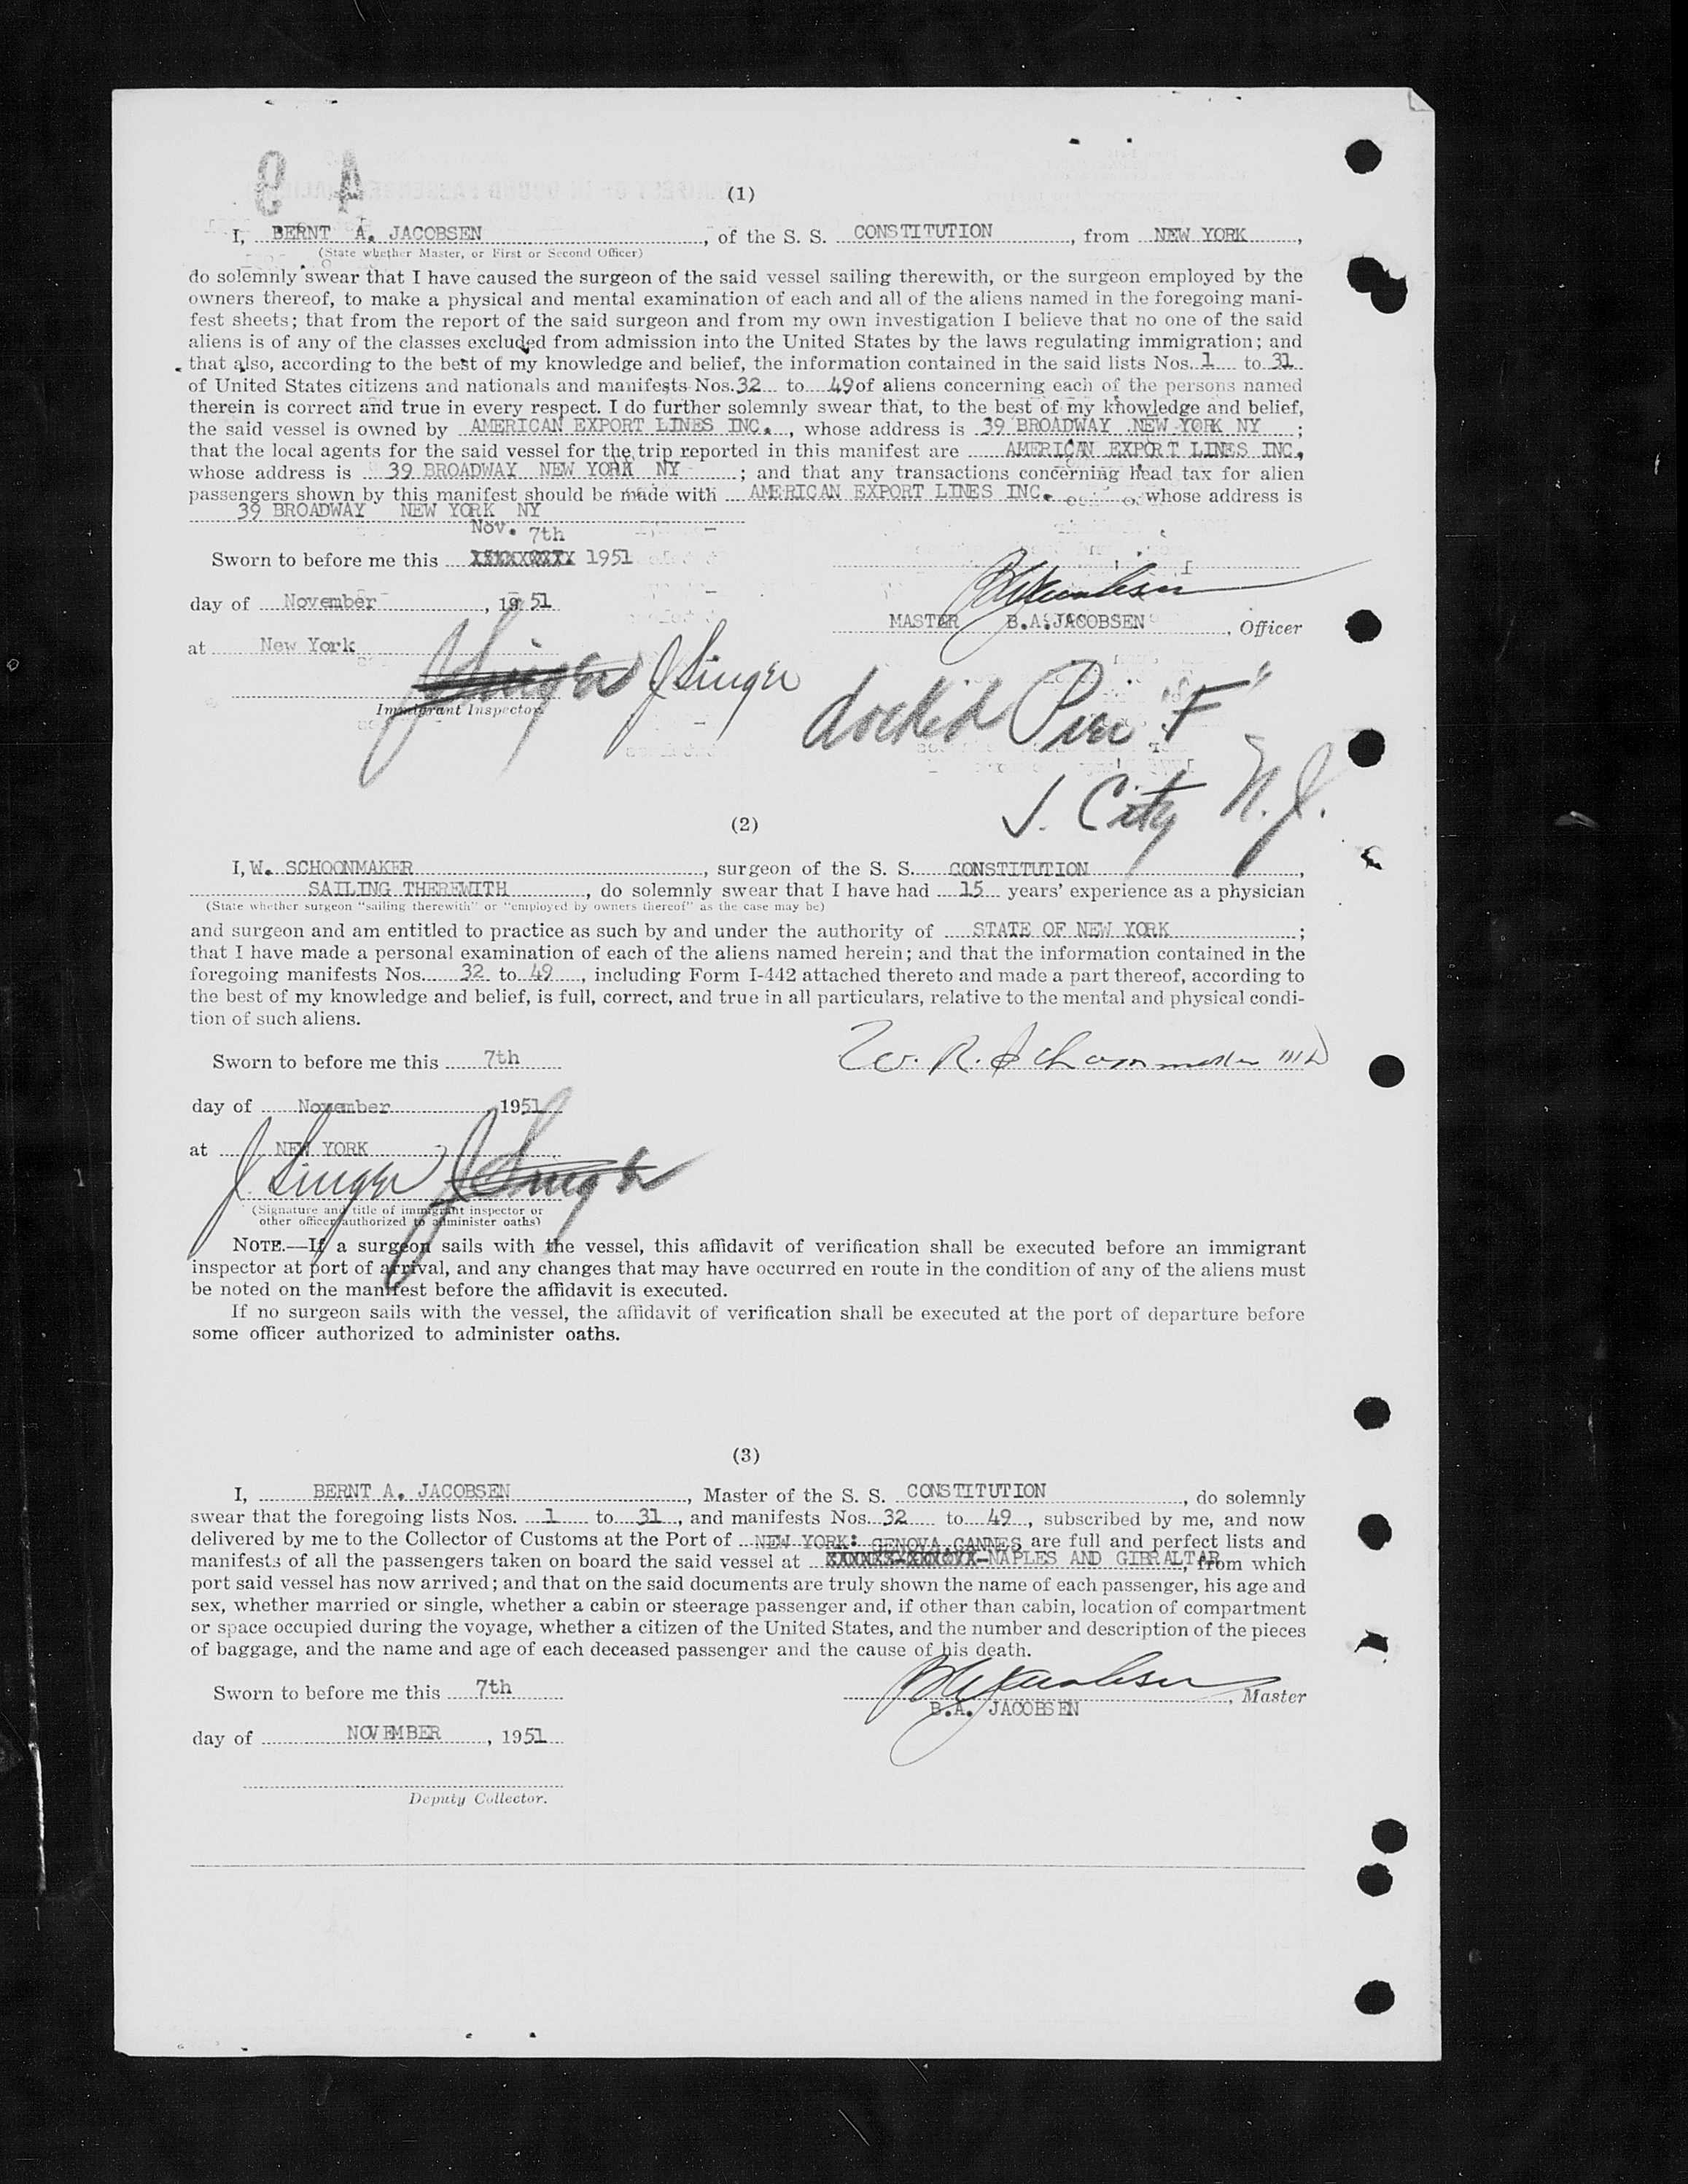 (1)
I, BERNT A. JACOBSEN, of the S. S. CONSTITUTION, from NEW YORK,
(State whether Master, or First or Second Officer)
do solemnly swear that I have caused the surgeon of the said vessel sailing therewith, or the surgeon employed by the
owners thereof, to make a physical and mental examination of each and all of the aliens named in the foregoing mani-
fest sheets; that from the report of the said surgeon and from my own investigation I believe that no one of the said
aliens is of any of the classes excluded from admission into the United States by the laws regulating immigration; and
that also, according to the best of my knowledge and belief, the information contained in the said lists Nos. 1 to 31
of United States citizens and nationals and manifests Nos. 32 to 49 of aliens concerning each of the persons named
therein is correct and true in every respect. I do further solemnly swear that, to the best of my knowledge and belief,
the said vessel is owned by AMERICAN EXPORT LINES INC., whose address is 39 BROADWAY NEW YORK NY;
that the local agents for the said vessel for the trip reported in this manifest are AMERICAN EXPORT LINES INC,
whose address is 39 BROADWAY NEW YORK NY; and that any transactions concerning head tax for alien
passengers shown by this manifest should be made with AMERICAN EXPORT LINES INC., whose address is
39 BROADWAY NEW YORK NY
Nov. 7th
Sworn to before me this 1951
day of November, 1951
MASTER B.A.JACOBSEN, Officer
at New York
J Singer J Singer
Immigrant Inspector.
docked Pier "F"
J. City N.J.
(2)
I, W. SCHOONMAKER, surgeon of the S. S. CONSTITUTION,
SAILING THEREWITH, do solemnly swear that I have had 15 years' experience as a physician
(State whether surgeon "sailing therewith" or "employed by owners thereof" as the case may be)
and surgeon and am entitled to practice as such by and under the authority of STATE OF NEW YORK;
that I have made a personal examination of each of the aliens named herein; and that the information contained in the
foregoing manifests Nos. 32 to 49, including Form I-442 attached thereto and made a part thereof, according to
the best of my knowledge and belief, is full, correct, and true in all particulars, relative to the mental and physical condi-
tion of such aliens.
W. R. Schoonmaker MD
Sworn to before me this 7th
day of November, 1951
at NEW YORK
J Singer J Singer
(Signature and title of immigrant inspector or
other officer authorized to administer oaths)
NOTE.—If a surgeon sails with the vessel, this affidavit of verification shall be executed before an immigrant
inspector at port of arrival, and any changes that may have occurred en route in the condition of any of the aliens must
be noted on the manifest before the affidavit is executed.
If no surgeon sails with the vessel, the affidavit of verification shall be executed at the port of departure before
some officer authorized to administer oaths.
(3)
I, BERNT A. JACOBSEN, Master of the S. S. CONSTITUTION, do solemnly
swear that the foregoing lists Nos. 1 to 31, and manifests Nos. 32 to 49, subscribed by me, and now
delivered by me to the Collector of Customs at the Port of NEW YORK: GENOVA.CANNES are full and perfect lists and
manifests of all the passengers taken on board the said vessel at NAPLES AND GIBRALTAR, from which
port said vessel has now arrived; and that on the said documents are truly shown the name of each passenger, his age and
sex, whether married or single, whether a cabin or steerage passenger and, if other than cabin, location of compartment
or space occupied during the voyage, whether a citizen of the United States, and the number and description of the pieces
of baggage, and the name and age of each deceased passenger and the cause of his death.
Sworn to before me this 7th
BAJacobsen, Master
B.A. JACOBSEN
day of NOVEMBER, 1951
Deputy Collector.